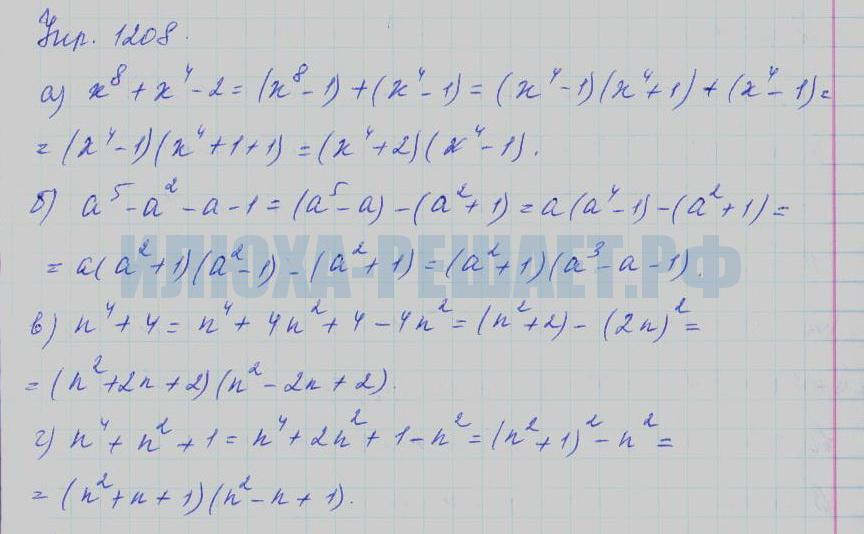 Упр. 1208.
а) x⁸ + x⁴ - 2 = (x⁸ - 1) + (x⁴ - 1) = (x⁴ - 1)(x⁴ + 1) + (x⁴ - 1) =
= (x⁴ - 1)(x⁴ + 1 + 1) = (x⁴ + 2)(x⁴ - 1).
б) a⁵ - a² - a - 1 = (a⁵ - a) - (a² + 1) = a(a⁴ - 1) - (a² + 1) =
ИЛЮХА-РЕШАЕТ.РФ
= a(a² + 1)(a² - 1) - (a² + 1) = (a² + 1)(a³ - a - 1).
в) n⁴ + 4 = n⁴ + 4n² + 4 - 4n² = (n² + 2) - (2n)² =
= (n² + 2n + 2)(n² - 2n + 2).
г) n⁴ + n² + 1 = n⁴ + 2n² + 1 - n² = (n² + 1)² - n² =
= (n² + n + 1)(n² - n + 1).